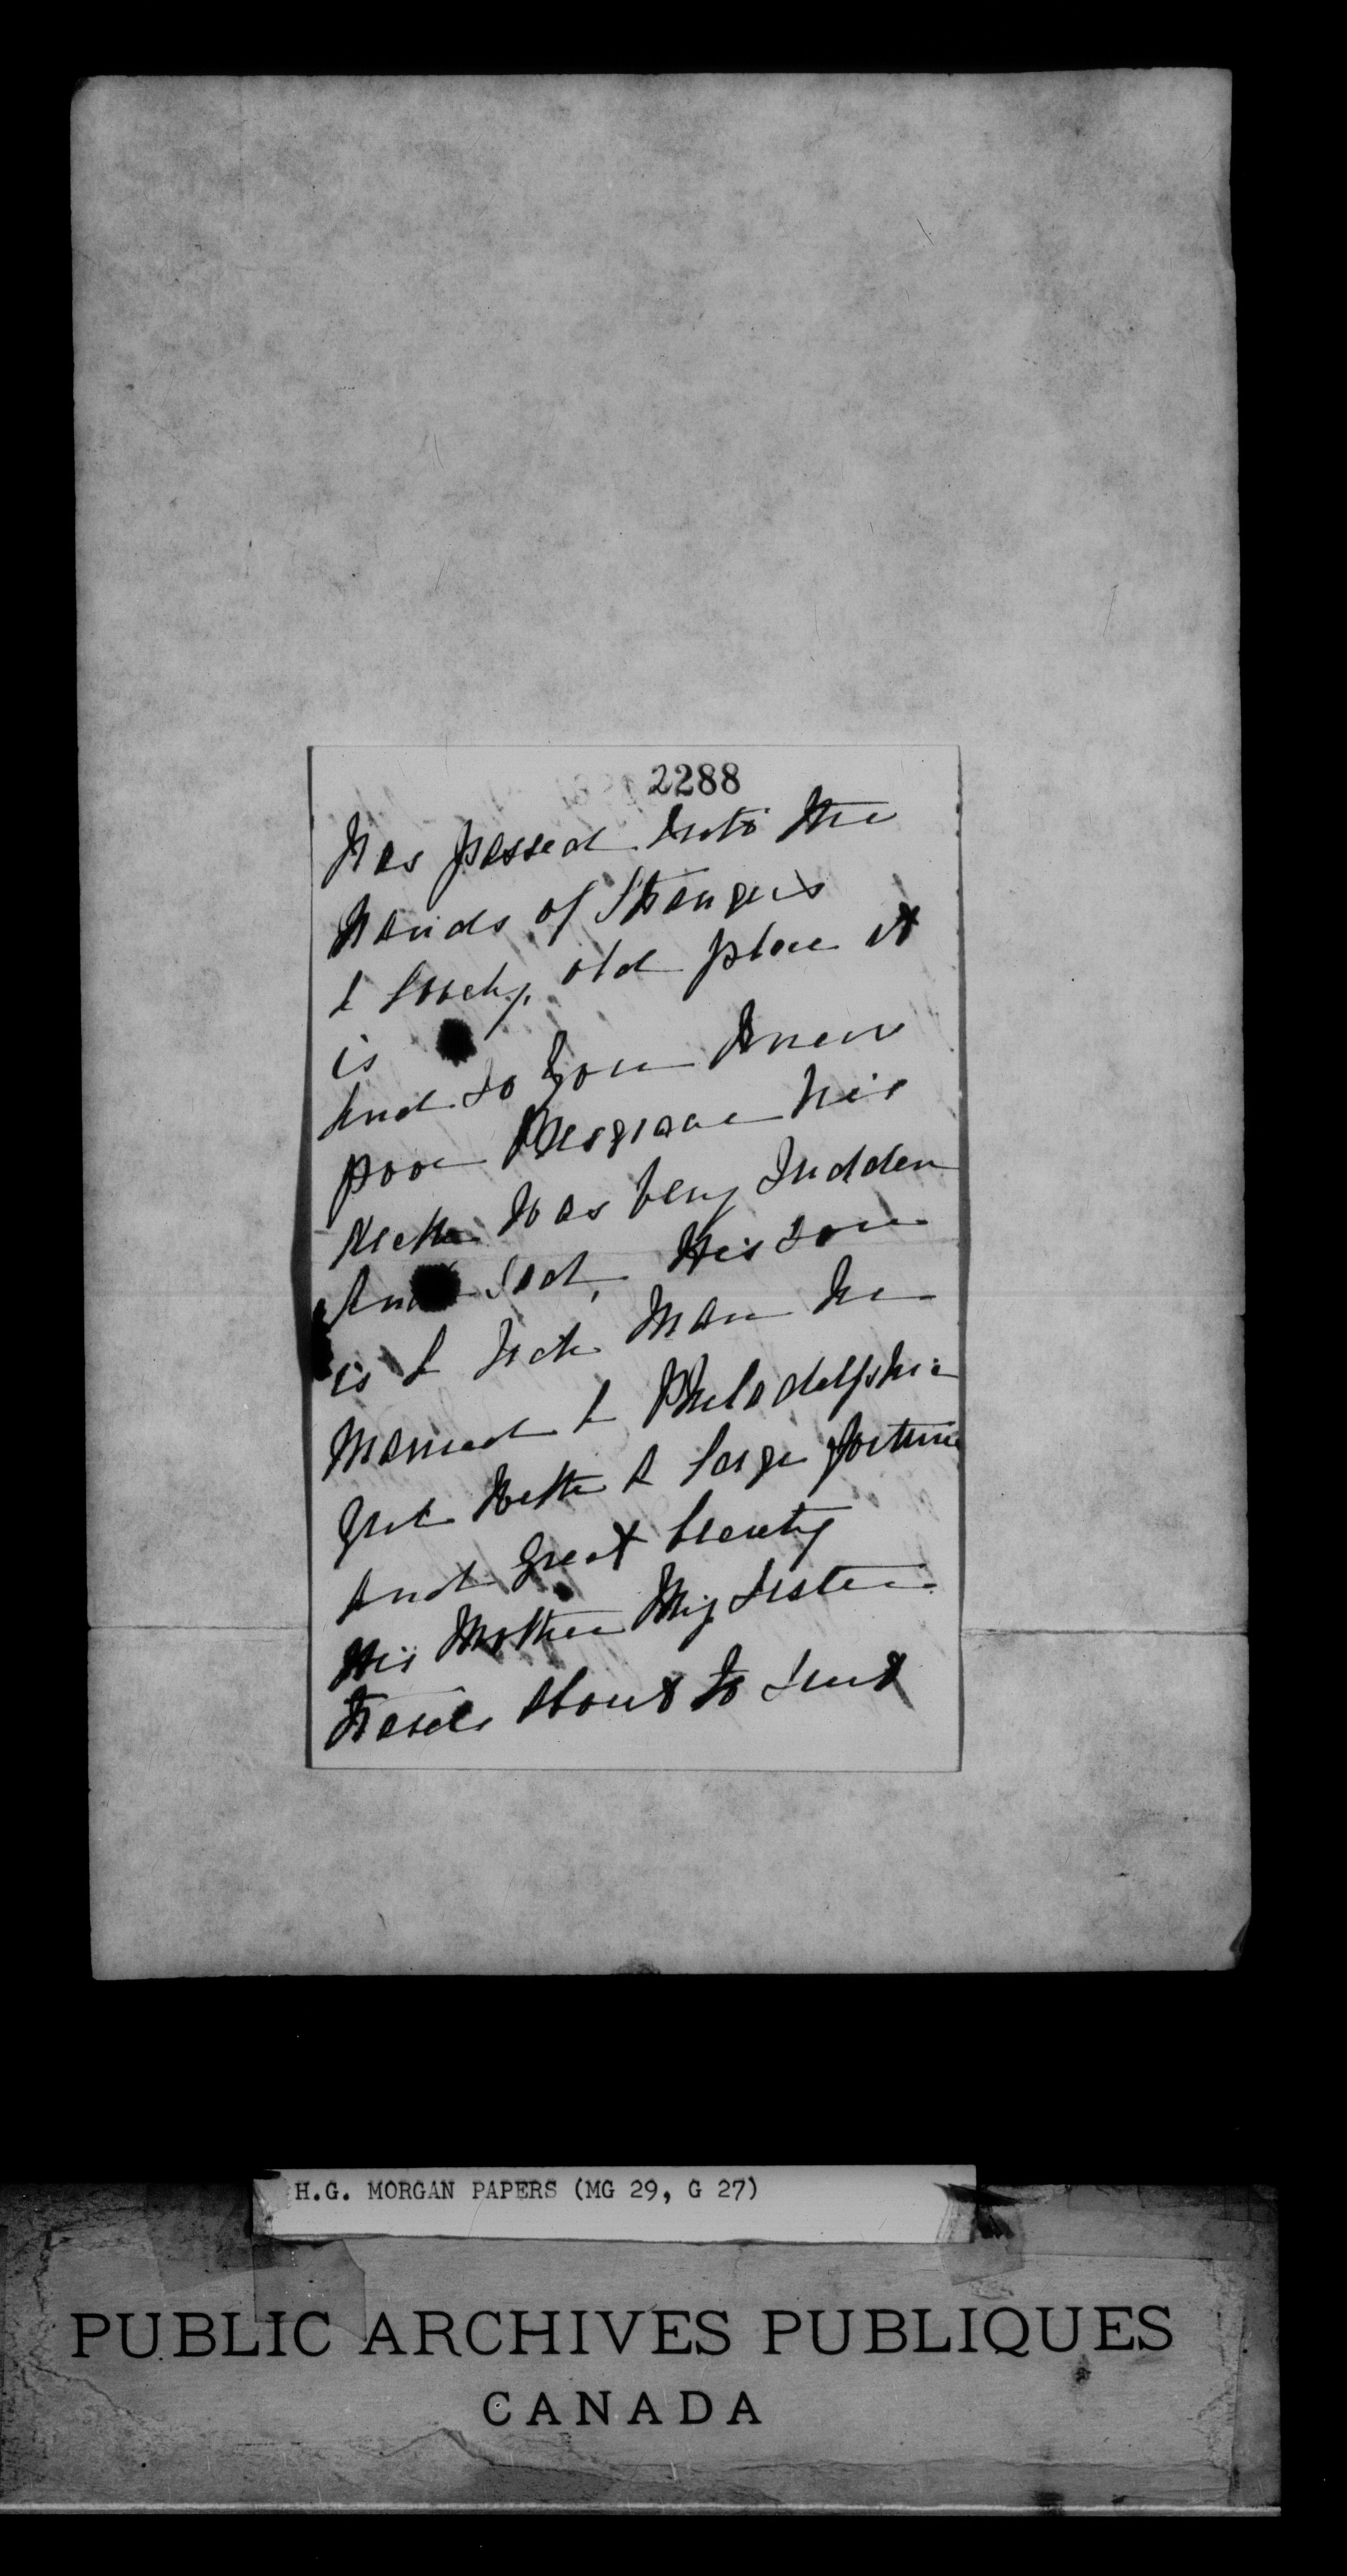 2288
has passed into the
hands of Strangers
A lovely old place it
is
And so you knew
poor Musgrave his
death was very Sudden
And Sad, His son
is A rich man he
married A Philadelphia
girl with A large fortune
And great beauty
His Mother My Sister
has about to
H.G. MORGAN PAPERS (MG 29, G 27)
PUBLIC ARCHIVES PUBLIQUES
CANADA